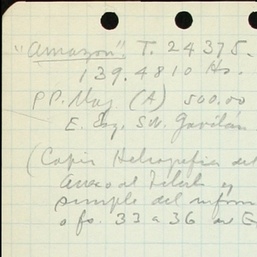 "Amazon" T. 24375.
139.4810 Hs.
PP. May (A) 500.00
E. Esq. S.W. Gavilán
(Copia Heliografica del
anexo al Titulo y
simple del inform
a fs. 33 a 36 del E